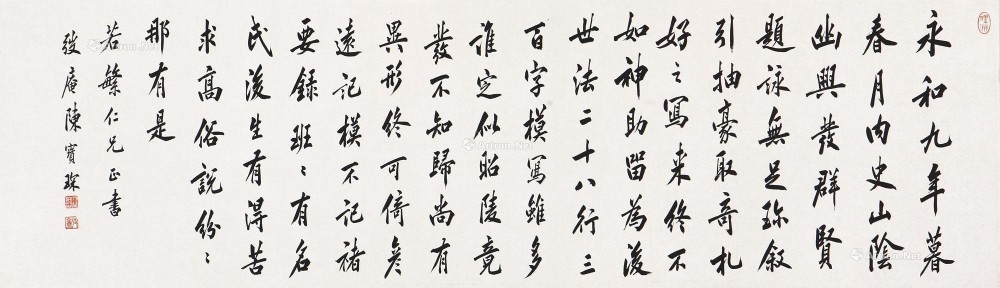 永和九年暮
春月内史山陰
幽興發群賢
題詠無足珎叙
引抽豪取奇札
好之寫来終不
如神助留為後
世法二十八行三
百字模寫雖多
誰定似昭陵竟
發不知歸尚有
異形終可倚彦
遠記模不記褚
要録班〻有名
氏後生有淂苦
求高俗説紛〻
那有是
若繁仁兄正書
弢庵陳寶琛